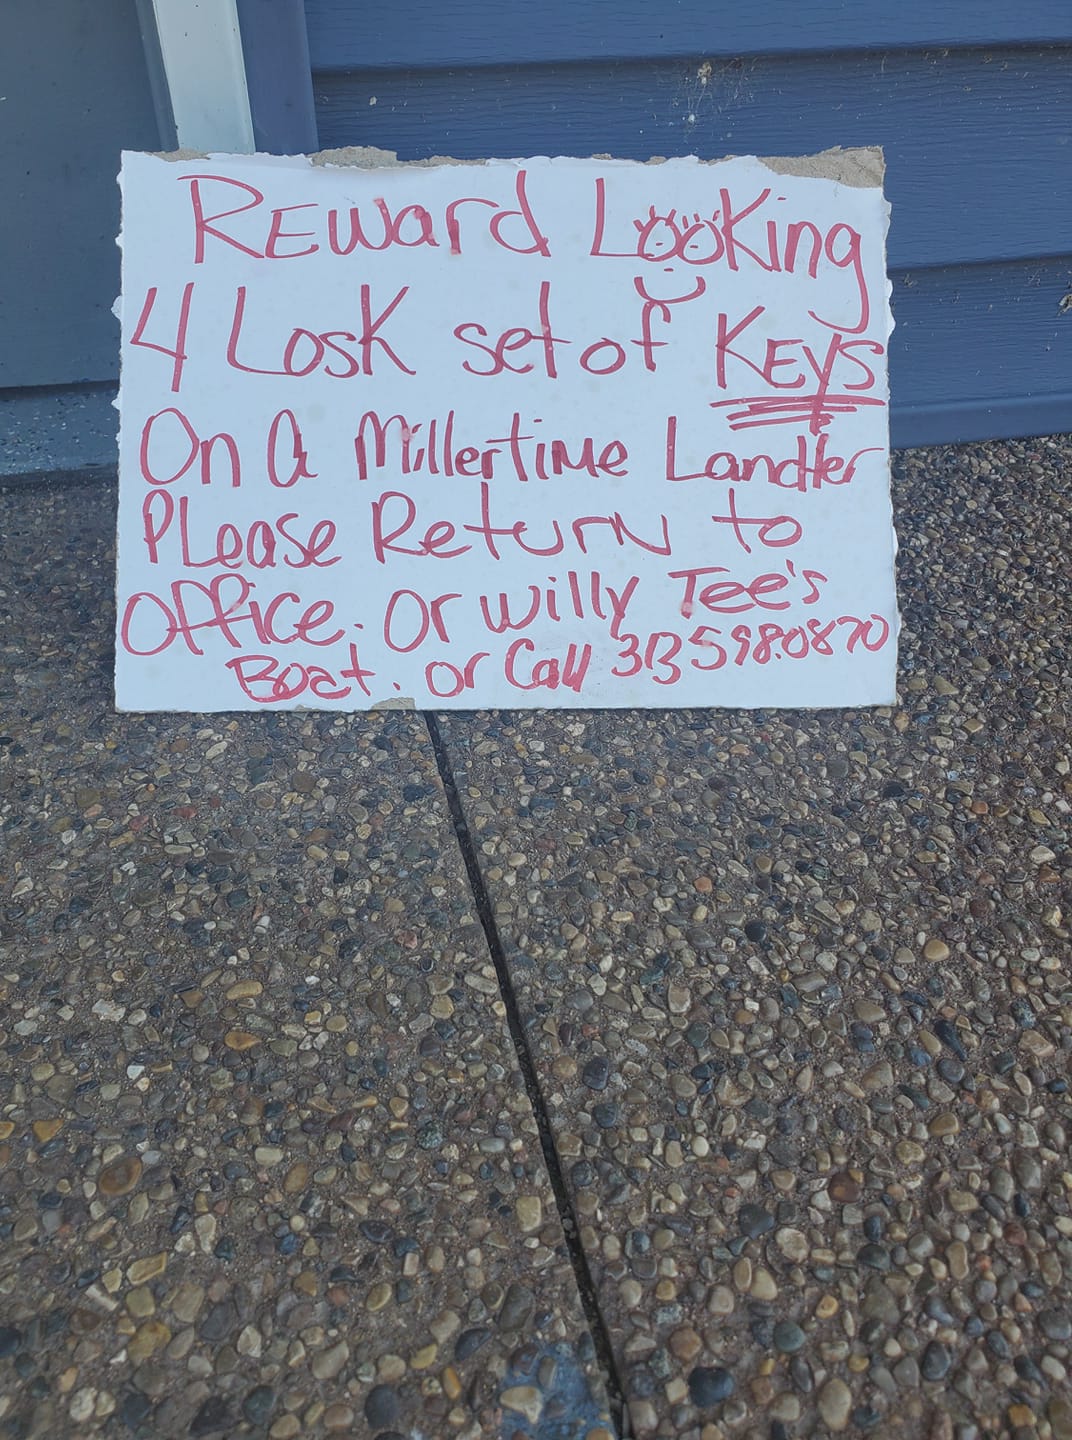 REward Looking
4 Losk set of KEYS
On A Millertime Landter
PLease Return to
Office. Or willy Tee's
Boat. or Call 313 598.0870